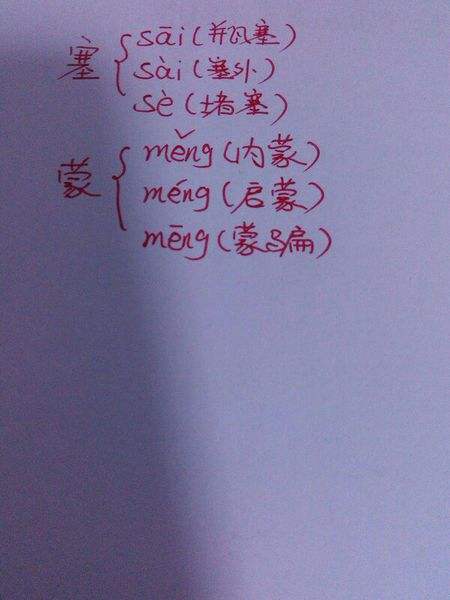 塞 sāi(瓶塞)
sài(塞外)
sè(堵塞)
蒙 měng(内蒙)
méng(启蒙)
mēng(蒙骗)